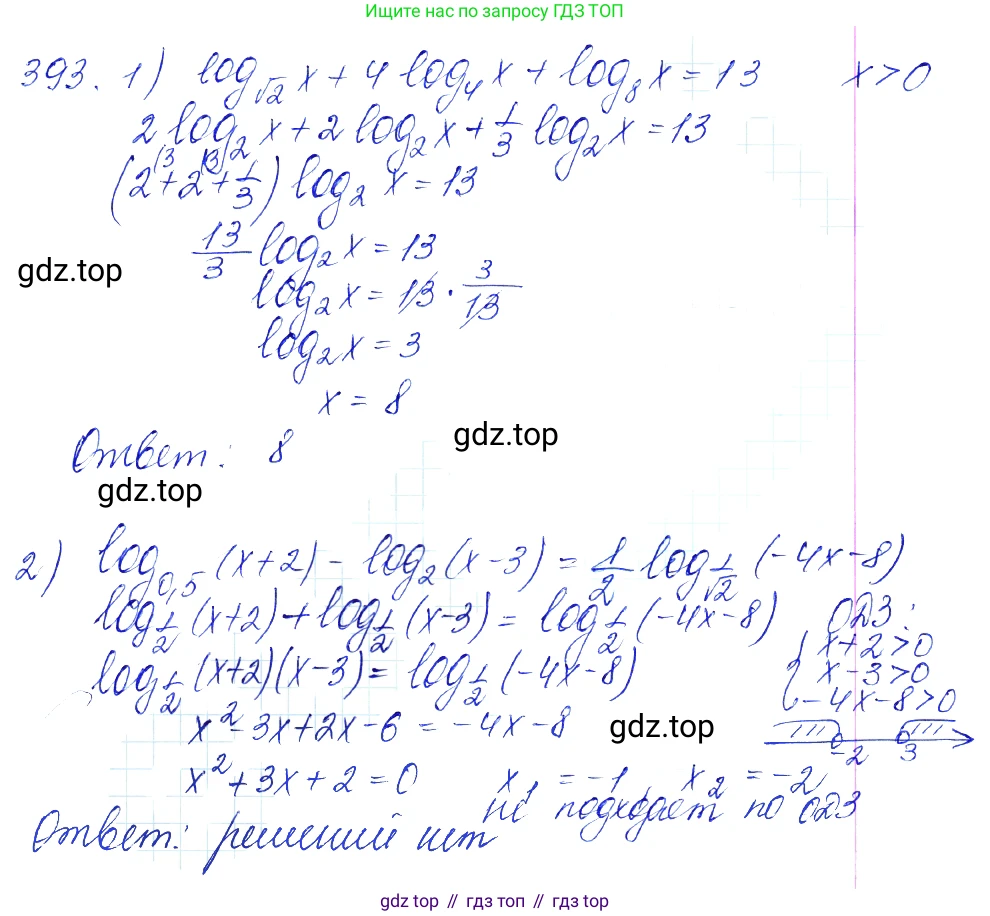 Ищите нас по запросу ГДЗ ТОП
393. 1) log_√2 x + 4 log_4 x + log_8 x = 13 x > 0
2 log_2 x + 2 log_2 x + 1/3 log_2 x = 13
(2 + 2 + 1/3) log_2 x = 13
13/3 log_2 x = 13
gdz.top
log_2 x = 13 · 3/13
log_2 x = 3
x = 8
Ответ: 8
gdz.top
gdz.top
2) log_0,5 (x+2) - log_2 (x-3) = 1/2 log_1/√2 (-4x-8)
log_1/2 (x+2) + log_1/2 (x-3) = log_1/2 (-4x-8) ОДЗ:
x+2>0
log_1/2 (x+2)(x-3) = log_1/2 (-4x-8) x-3>0
-4x-8>0
x² - 3x + 2x - 6 = -4x - 8 gdz.top
-2 3
x² + 3x + 2 = 0 x_1 = -1, x_2 = -2
не подходят по ОДЗ
Ответ: решений нет
gdz.top // гдз топ // gdz top // гдз top